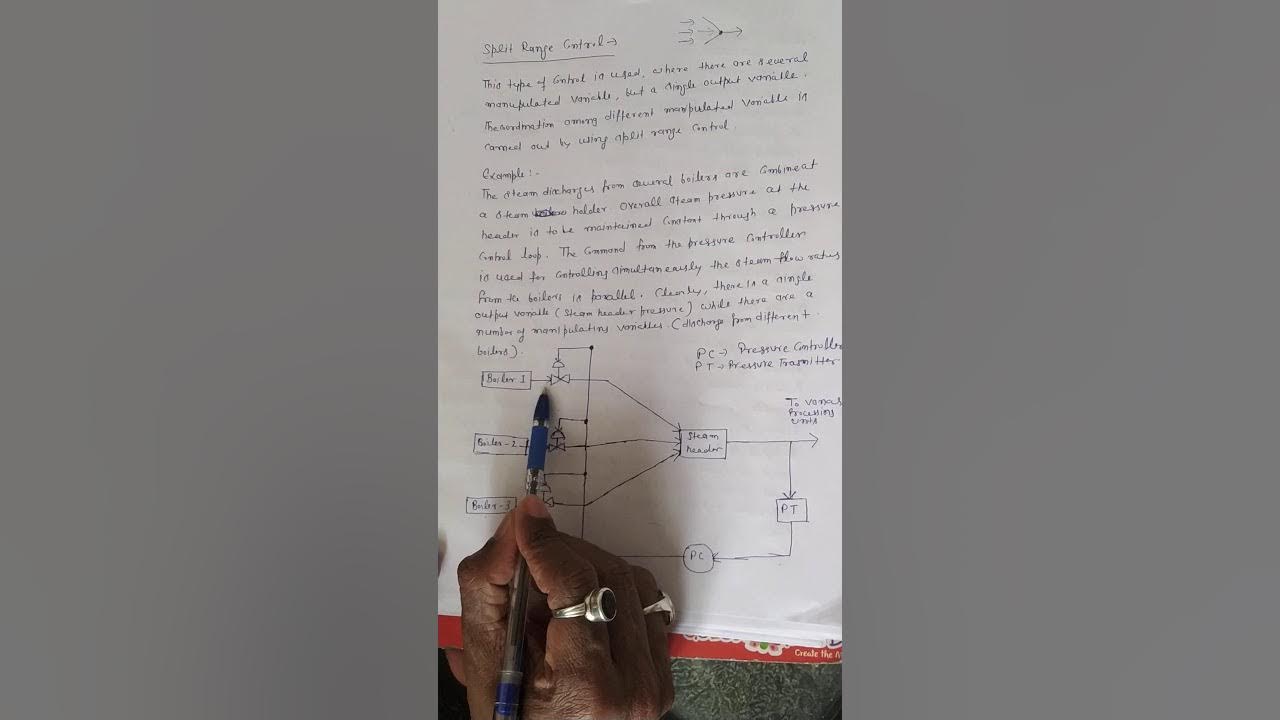 Split Range Control →
This type of Control is used, where there are several
manupulated Variable, but a single output variable.
The Cordination among different manipulated Variable is
carried out by using split range Control.
Example:-
The steam discharges from several boilers are Combine at
a steam holder. Overall steam pressure at the
header is to be maintained Constant through a pressure
Control loop. The Command from the pressure Controller
is used for Controlling simultaneously the steam flow rates
from the boilers is parallel. Clearly, there is a single
output variable (steam header pressure) while there are a
number of manipulating variables. (discharge from different
boilers).
PC → Pressure Controller
PT → Pressure Trasmitter
Boiler-1
To various
Processing
units
Boiler-2
Steam
header
Boiler-3
PT
PC
Create the